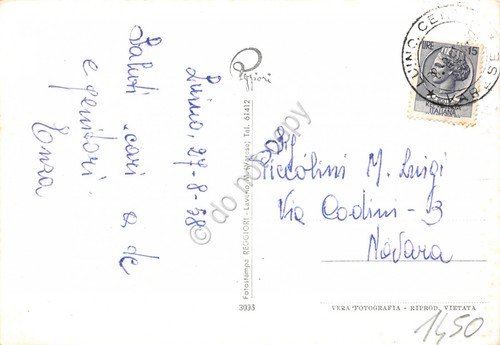 Luino, 27-8-58
Saluti cari a te
e genitori
Enza
Reggiori
Fotostampa REGGIORI - Laveno (Varese) Tel. 61412
3093
LUINO CENTRO
VARESE
LIRE 15
ITALIANA
Piccolini M. Luigi
Via Codini - 13
Novara
VERA FOTOGRAFIA - RIPROD. VIETATA
1450
do not copy